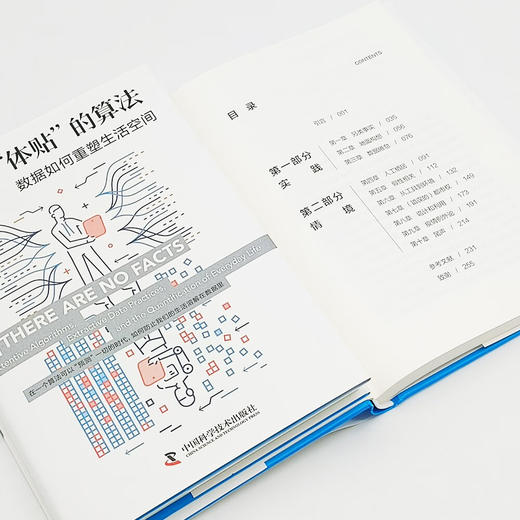 “体贴”的算法
数据如何重塑生活空间
THERE ARE NO FACTS
tentive Algorithms, Extractive Data Practices,
and the Quantification of Everyday Life
在一个算法可以“预测”一切的时代，如何防止我们的生活溶解在数据里
中国科学技术出版社
CHINA SCIENCE AND TECHNOLOGY PRESS
CONTENTS
目 录
引言 / 001
第一部分
实 践
第一章 另类事实 / 035
第二章 地图构想 / 056
第三章 数据路径 / 076
第二部分
情 境
第四章 人工情感 / 091
第五章 极性相关 / 117
第六章 从工具到环境 / 132
第七章 （结成的）都市权 / 149
第八章 设计和利用 / 173
第九章 疫情的外部 / 191
第十章 尾声 / 214
参考文献 / 231
致谢 / 255